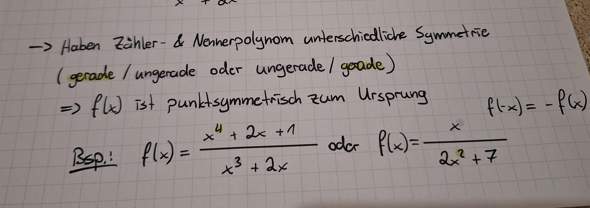 → Haben Zähler- & Nennerpolynom unterschiedliche Symmetrie
(gerade / ungerade oder ungerade / gerade)
⇒ f(x) ist punktsymmetrisch zum Ursprung f(-x) = -f(x)
Bsp.: f(x) = (x⁴ + 2x + 1)/(x³ + 2x) oder f(x) = x/(2x² + 7)